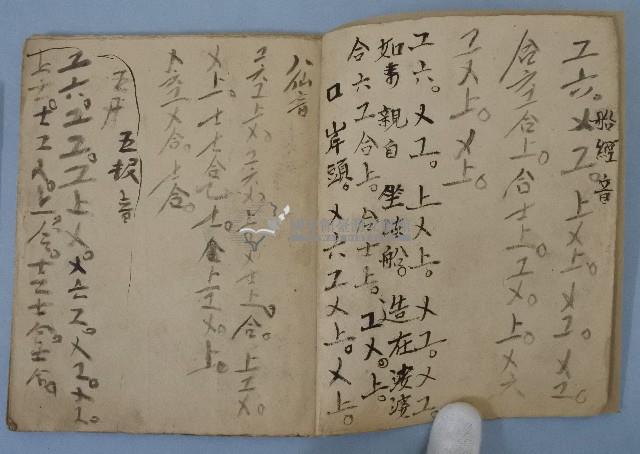 船經音
工六。乂工。上乂上。乂工。乂工。
合六工合上。合士上。工乂。上。乂六
工乂上。乂上。
工六。乂工。上乂上。乂工。乂工。
如來親自坐法船。造在波波
合六工合上。合士上。工乂。上。
口岸頭。乂六工乂上。乂上。
八仙音
工六工上乂。工六乂。上乂士上。合。上工乂。
乂上。士士合士。合上工乂。上。
工乂合。士合。
五板音
工六。工工。工上乂。乂六工。乂工。乂工。
士工乂。上合。士工士合。士合。